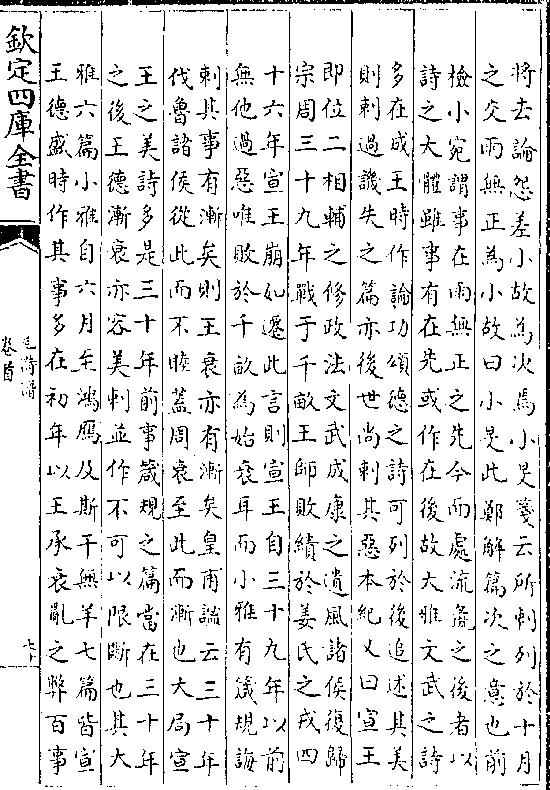 將去論怨差小故為次焉小旻箋云所刺列於十月
之交雨無正為小故曰小旻此鄭解篇次之意也前
檢小宛謂事在雨無正之先今而處流彘之後者以
詩之大體雖事有在先或作在後故大雅文武之詩
多在成王時作論功頌德之詩可列於後追述其美
則刺過譏失之篇亦後世尚刺其惡本紀又曰宣王
即位二相輔之修政法文武成康之遺風諸侯復歸
宗周三十九年戰于千畝王師敗績於姜氏之戎四
十六年宣王崩如遷此言則宣王自三十九年以前
無他過惡唯敗於千畝為始衰耳而小雅有箴規誨
刺其事有漸矣則王衰亦有漸矣皇甫謐云三十年
伐魯諸侯從此而不睦蓋周衰至此而漸也大局宣
王之美詩多是三十年前事箴規之篇當在三十年
之後王德漸衰亦容美刺並作不可以限斷也其大
雅六篇小雅自六月至鴻鴈及斯干無羊七篇皆宣
王德盛時作其事多在初年以王承衰亂之弊百事
欽定四庫全書
毛詩譜
卷首